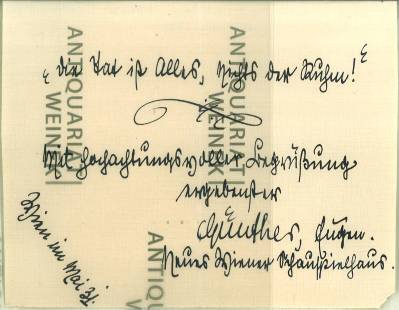 „die Tat ist Alles, nichts der Ruhm!“
Mit hochachtungsvoller Begrüßung
ergebenster
Günther, Eugen.
Neues Wiener Schauspielhaus.
Wien im Mai 31.
ANTIQUARIAT
WEINEK
ANTIQUARIAT
WEINEK
ANTIQUARIAT